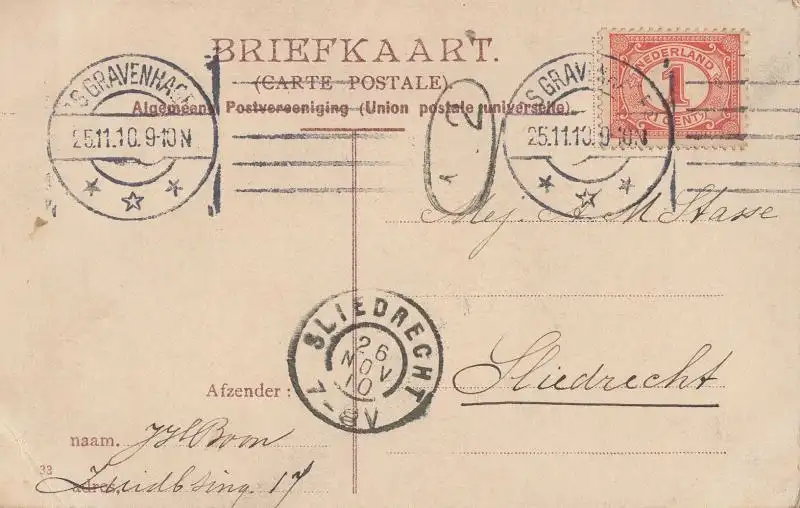 BRIEFKAART.
(CARTE POSTALE).
Algemeene Postvereeniging (Union postale universelle).
'S GRAVENHAGE
25.11.10. 9-10 N
2
'S GRAVENHAGE
25.11.10. 9-10 N
NEDERLAND
1
(1 CENT)
Mej. A. M. Stasse
SLIEDRECHT
26
NOV
10
7-8V
Sliedrecht
Afzender:
naam. JH Boon
33
adres. 17